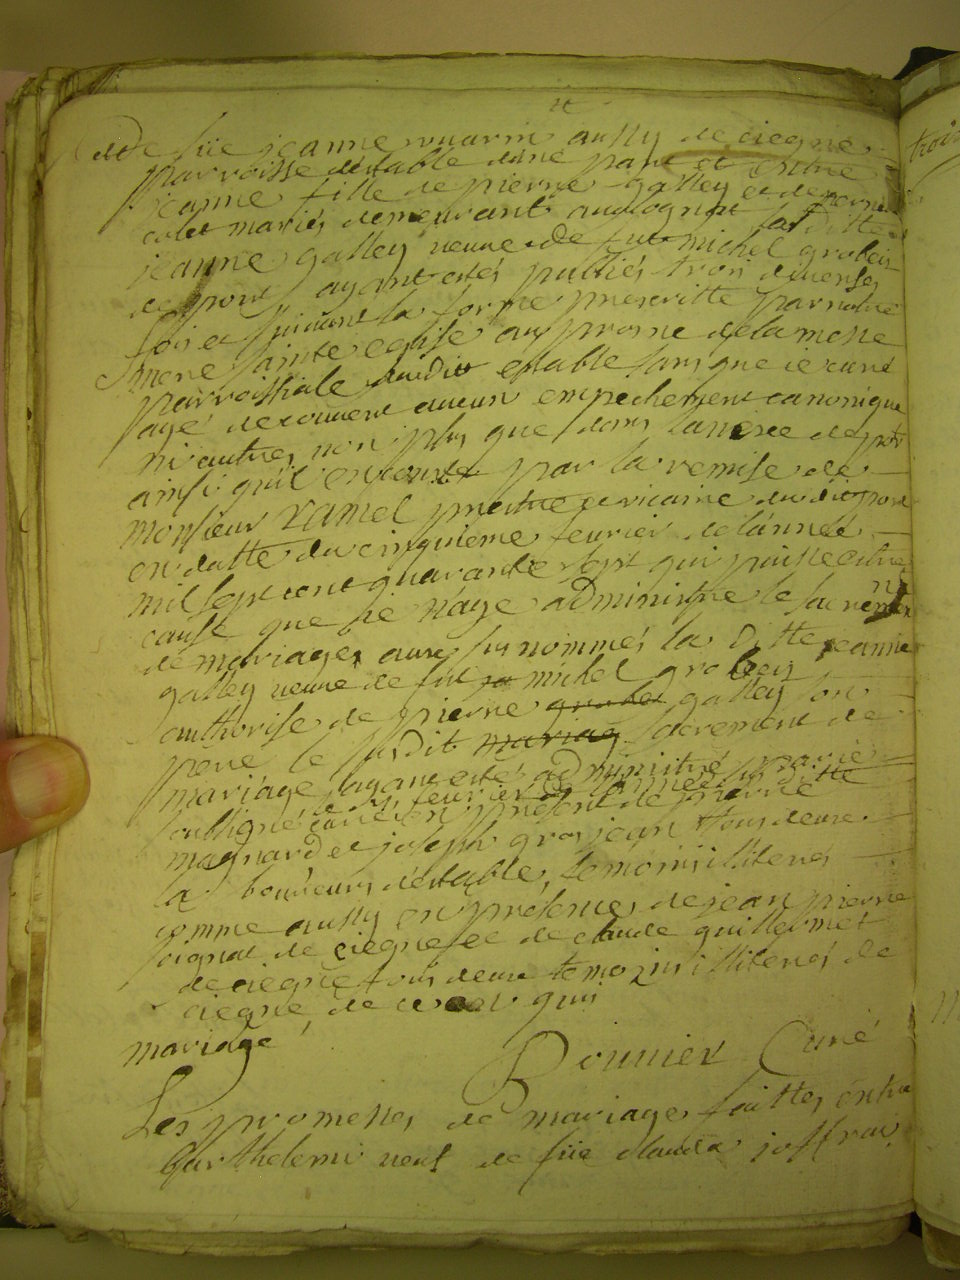 et
de füe jeanne vuarin aussy de ciegne
parroisse destable dune part et entre
jeanne fille de pierre galley et de
colet mariés demeurant au dognat la ditte
jeanne galley veuve de fut michel grobein
de pont ayant estés publiés trois diverses
fois et suivant la forme prescritte par nottre
mere sainte eglise au prosne de la messe
parroissiale dudit estable sans que ie curé
ayé decouvert aucun empechement canonique
ni autres non plus que dans
ainsi quil en conste par la remise de
monsieur ramel prestre et vicaire du dit pont
en datte du cinquieme fevrier de lannée
mil sept cent quarante sept qui puisse estre
cause que je naye administre le sacrement
de mariages aux sus nommés la ditte jeanne
galley veuve de fut michel grobein
authorise de pierre galley son
pere le susdit mariag sacrement de
mariage ayant estés administré par ie
soubsigné curé en present de pierre
le fevrier année susditte
magnard et joseph grosjean tous deux
la boureurs destable temoins illiterés
comme aussy en presence de jean pierre
de ciegne et de claude guillermet
de ciegne tous deux temoins illiterés de
ciegne de ce qui
mariage
Bouvier Curé
Les promesses de mariages faittes entre
Barthelemi veuf de füe claudä joffray
trois